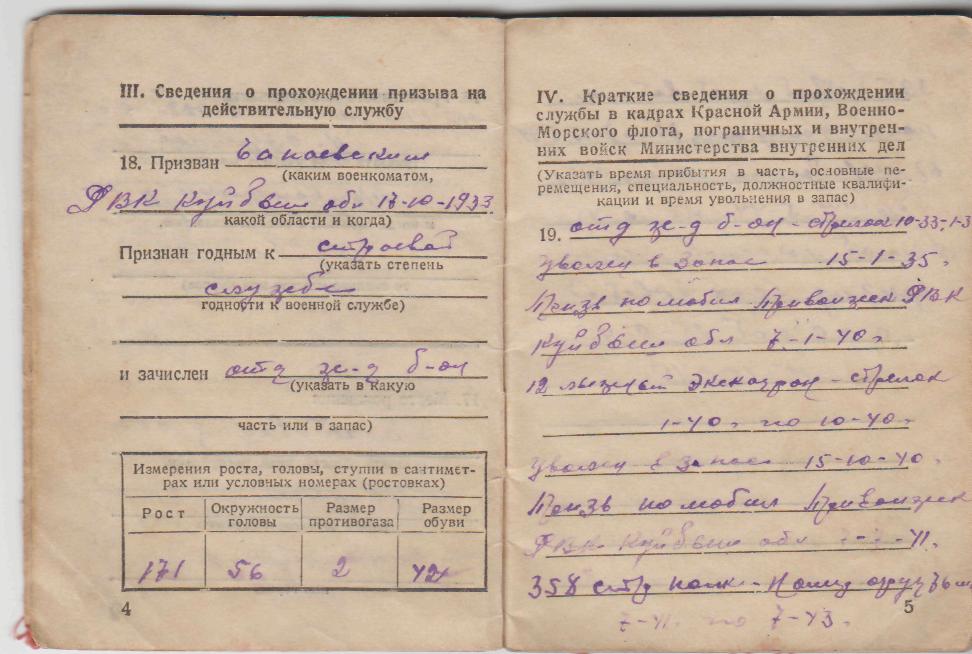 III. Сведения о прохождении призыва на
действительную службу
18. Призван Чапаевским
(каким военкоматом,
РВК Куйбыш обл 13-10-1933
какой области и когда)
Признан годным к строевой
(указать степень
службе
годности к военной службе)
и зачислен отд ж-д б-он
(указать в какую
часть или в запас)
Измерения роста, головы, ступни в сантимет-
рах или условных номерах (ростовках)
Рост Окружность головы Размер противогаза Размер обуви
171 56 2 42
4
IV. Краткие сведения о прохождении
службы в кадрах Красной Армии, Военно-
Морского флота, пограничных и внутрен-
них войск Министерства внутренних дел
(Указать время прибытия в часть, основные пе-
ремещения, специальность, должностные квалифи-
кации и время увольнения в запас)
19. отд ж-д б-он - стрелок 10-33; 1-3
Уволен в запас 15-1-35.
Призв по мобил Приволжск РВК
Куйбыш обл 7-1-40г
12 лыжный эскадрон - стрелок
1-40г по 10-40г
Уволен в запас 15-10-40.
Призв по мобил Приволжск
РВК Куйбыш обл 41.
358 стр полк - оруд
5
7-41. по 7-43.